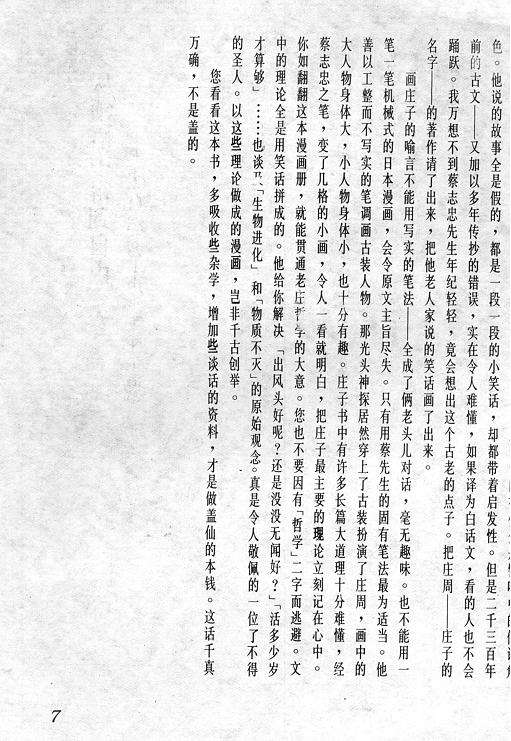 色。他说的故事全是假的，都是一段一段的小笑话，却都带着启发性。但是二千三百年
前的古文——又加以多年传抄的错误，实在令人难懂，如果译为白话文，看的人也不会
踊跃。我万想不到蔡志忠先生年纪轻轻，竟会想出这个古老的点子。把庄周——庄子的
名字——的著作请了出来，把他老人家说的笑话画了出来。
画庄子的喻言不能用写实的笔法——全成了俩老头儿对话，毫无趣味。也不能用一
笔一笔机械式的日本漫画，会令原文主旨尽失。只有用蔡先生的固有笔法最为适当。他
善以工整而不写实的笔调画古装人物。那光头神探居然穿上了古装扮演了庄周，画中的
大人物身体大，小人物身体小，也十分有趣。庄子书中有许多长篇大道理十分难懂，经
蔡志忠之笔，变了几格的小画，令人一看就明白，把庄子最主要的理论立刻记在心中。
你如翻翻这本漫画册，就能贯通老庄哲学的大意。您也不要因有「哲学」二字而逃避。文
中的理论全是用笑话拼成的。他给你解决「出风头好呢？还是没没无闻好？」「活多少岁
才算够」……也谈及「生物进化」和「物质不灭」的原始观念。真是令人敬佩的一位了不得
的圣人。以这些理论做成的漫画，岂非千古创举。
您看看这本书，多吸收些杂学，增加些谈话的资料，才是做盖仙的本钱。这话千真
万确，不是盖的。
7